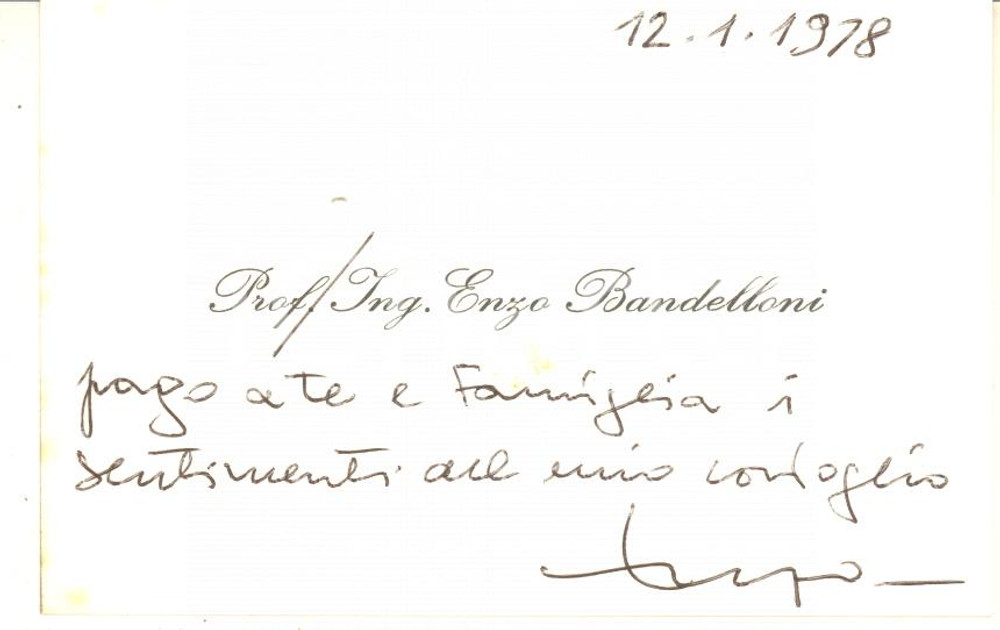 12.1.1978
Prof. Ing. Enzo Bandelloni
pago a te e Famiglia i
sentimenti del mio cordoglio
Enzo